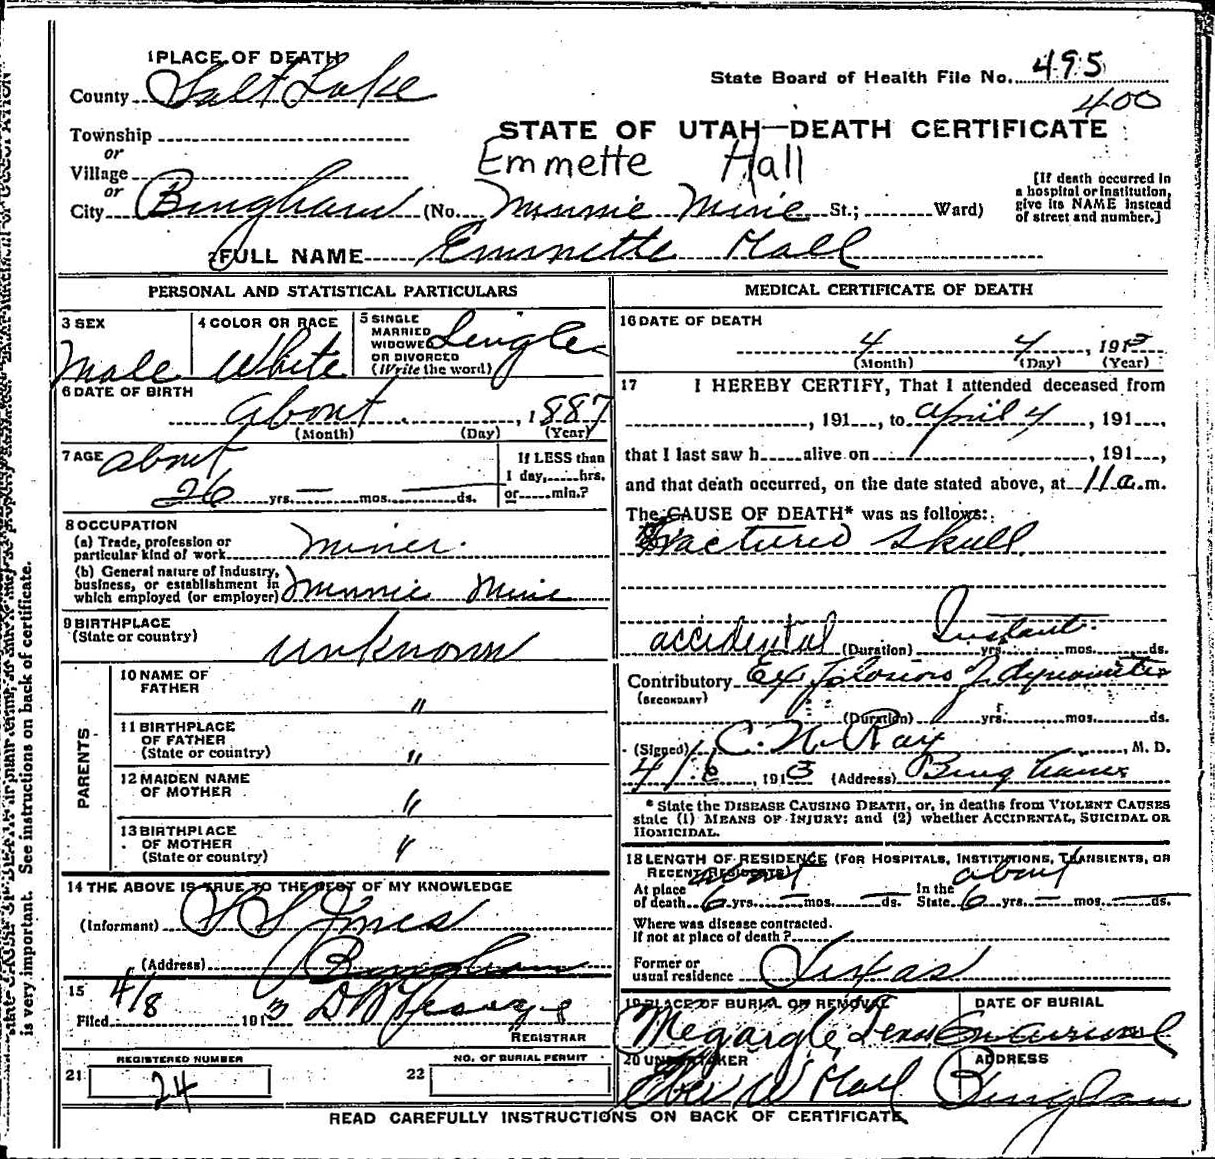 1 PLACE OF DEATH
County Salt Lake
State Board of Health File No. 495
400
Township
or
Village
or
City Bingham (No. Minnie Mine St.; Ward)
STATE OF UTAH—DEATH CERTIFICATE
Emmette Hall
[If death occurred in
a hospital or institution,
give its NAME instead
of street and number.]
2 FULL NAME Emmette Hall
PERSONAL AND STATISTICAL PARTICULARS
3 SEX
Male
4 COLOR OR RACE
White
5 SINGLE
MARRIED
WIDOWED
OR DIVORCED
(Write the word)
Single
6 DATE OF BIRTH
about , 1887
(Month) (Day) (Year)
7 AGE about
26 yrs. — mos. — ds.
If LESS than
1 day, hrs.
or min.?
8 OCCUPATION
(a) Trade, profession or
particular kind of work miner.
(b) General nature of industry,
business, or establishment in
which employed (or employer) Minnie Mine
9 BIRTHPLACE
(State or country) unknown
PARENTS
10 NAME OF
FATHER "
11 BIRTHPLACE
OF FATHER
(State or country) "
12 MAIDEN NAME
OF MOTHER "
13 BIRTHPLACE
OF MOTHER
(State or country) "
14 THE ABOVE IS TRUE TO THE BEST OF MY KNOWLEDGE
(Informant) Jones
(Address) Bingham
15
Filed 4/8 1913
REGISTRAR
REGISTERED NUMBER
21 24
NO. OF BURIAL PERMIT
22
MEDICAL CERTIFICATE OF DEATH
16 DATE OF DEATH
4 4 , 1913
(Month) (Day) (Year)
17 I HEREBY CERTIFY, That I attended deceased from
, 191 , to April 4 , 191 ,
that I last saw h alive on , 191 ,
and that death occurred, on the date stated above, at 11 a.m.
The CAUSE OF DEATH* was as follows:
Fractured Skull
accidental (Duration) Instant. yrs. mos. ds.
Contributory Explosions of dynamite
(SECONDARY)
(Duration) yrs. mos. ds.
(Signed) C. N. Ray , M. D.
4/6 , 1913 (Address) Bingham
* State the DISEASE CAUSING DEATH, or, in deaths from VIOLENT CAUSES
state (1) MEANS OF INJURY: and (2) whether ACCIDENTAL, SUICIDAL OR
HOMICIDAL.
18 LENGTH OF RESIDENCE (FOR HOSPITALS, INSTITUTIONS, TRANSIENTS, OR
RECENT RESIDENTS)
about about
At place In the
of death 6 yrs. — mos. — ds. State 6 yrs. — mos. — ds.
Where was disease contracted.
If not at place of death?
Former or
usual residence Texas
19 PLACE OF BURIAL OR REMOVAL
Megargle, Texas
DATE OF BURIAL
20 UNDERTAKER
Eber W Hall
ADDRESS
Bingham
READ CAREFULLY INSTRUCTIONS ON BACK OF CERTIFICATE
is very important. See instructions on back of certificate.